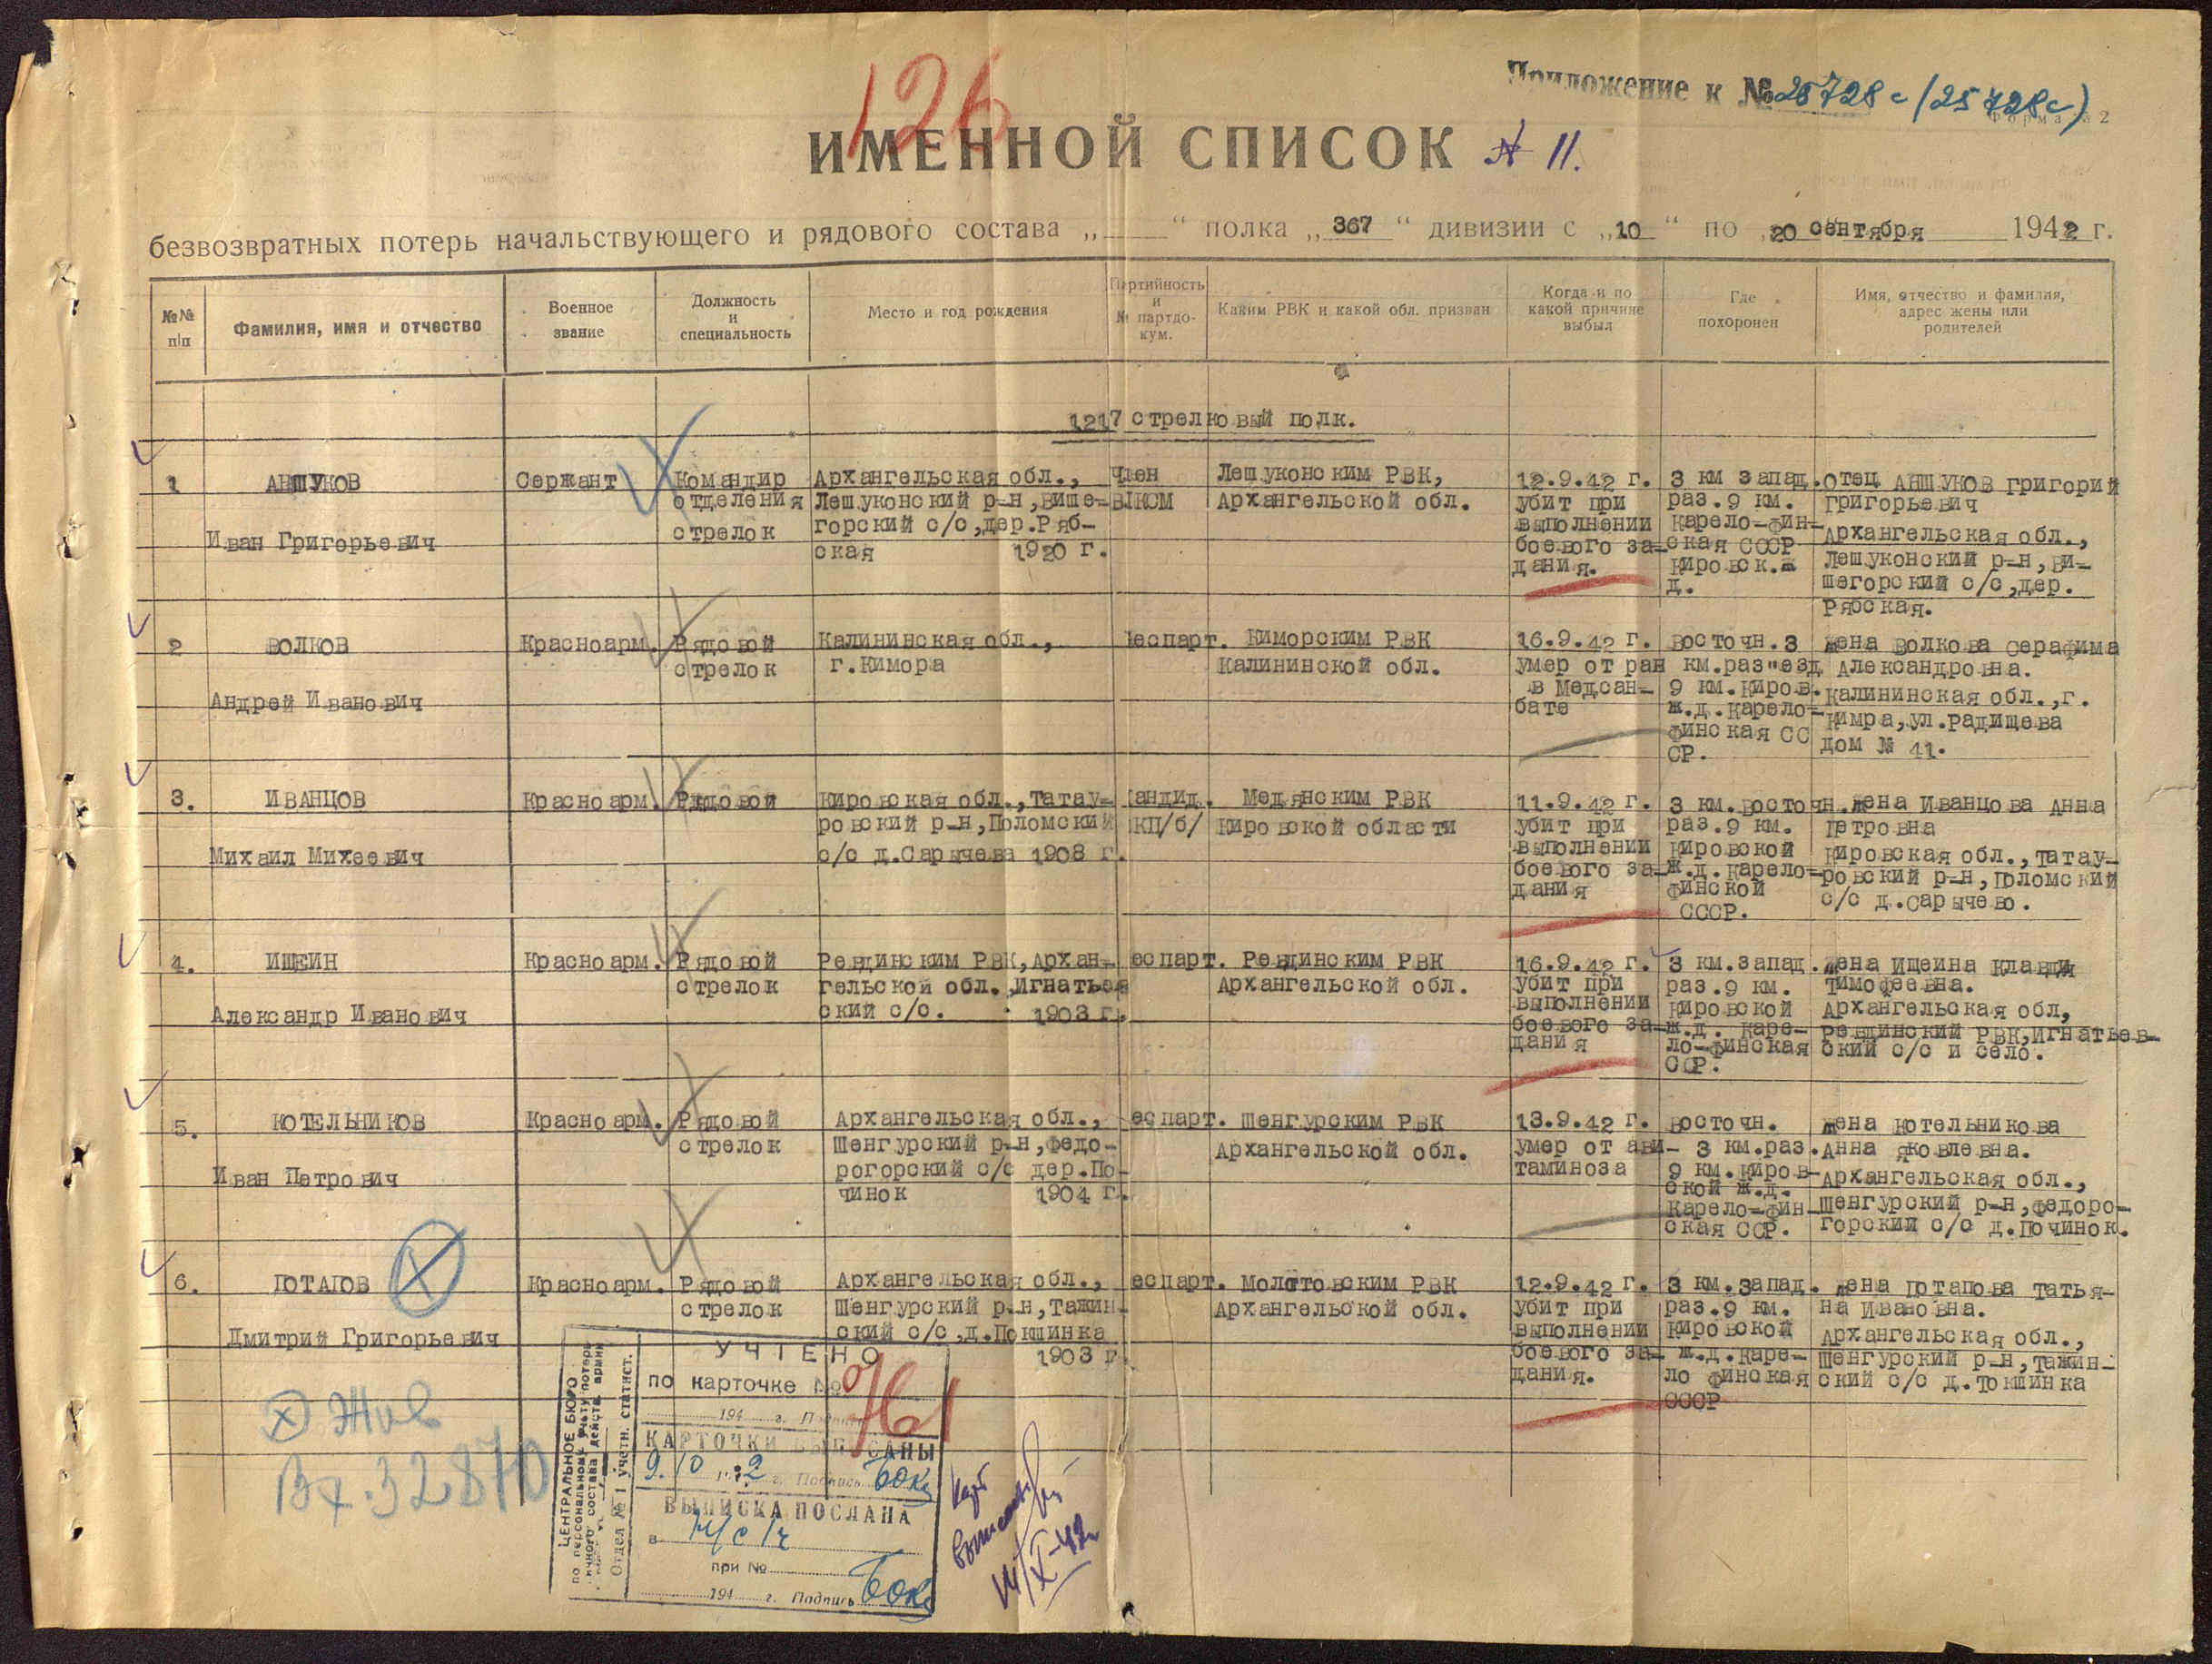 126
Приложение к № 25728с (25728с)
Форма № 2
ИМЕННОЙ СПИСОК № 11.
безвозвратных потерь начальствующего и рядового состава „ “ полка „ 367 “ дивизии с „10 “ по „20 сентября 1942 г.
№№ п/п
Фамилия, имя и отчество
Военное звание
Должность и специальность
Место и год рождения
Партийность и № партдокум.
Каким РВК и какой обл. призван
Когда и по какой причине выбыл
Где похоронен
Имя, отчество и фамилия, адрес жены или родителей
1217 стрелковый полк.
1
АНШУКОВ
Иван Григорьевич
Сержант
Командир
отделения
стрелок
Архангельская обл.,
Лешуконский р-н, Више-
горский с/с, дер.Ряб-
ская 1920 г.
Член
ВЛКСМ
Лешуконским РВК,
Архангельской обл.
12.9.42 г.
убит при
выполнении
боевого за-
дания.
3 км запад.
раз.9 км.
Карело-фин-
ская СССР
Кировск.ж
д.
Отец АНШУКОВ Григорий
Григорьевич
Архангельская обл.,
Лешуконский р-н, Ви-
шегорский с/с, дер.
Рябская.
2
ВОЛКОВ
Андрей Иванович
Красноарм.
Рядовой
стрелок
Калининская обл.,
г.Кимора
еспарт.
Киморским РВК
Калининской обл.
16.9.42 г.
умер от ран
в Медсан-
бате
Восточн.3
км.раз"езд
9 км.Киров.
ж.д.Карело-
финская СС
СР.
Жена Волкова Серафима
Александровна.
Калининская обл.,г.
Кимра,ул.Радищева
дом № 41.
3.
ИВАНЦОВ
Михаил Михеевич
Красноарм.
Рядовой
Кировская обл.,Татау-
ровский р-н,Поломский
с/с д.Сарычева 1908 г.
андид.
КП/б/
Медянским РВК
Кировской области
11.9.42 г.
убит при
выполнении
боевого за-
дания
3 км.восточн.
раз.9 км.
Кировской
ж.д.Карело-
финской
СССР.
Жена Иванцова Анна
Петровна
Кировская обл.,Татау-
ровский р-н,Поломский
с/с д.Сарычево.
4.
ИШЕИН
Александр Иванович
Красноарм.
Рядовой
стрелок
Ревдинским РВК,Архан-
гельской обл.,Игнатьев
ский с/с. 1903 г.
еспарт.
Ревдинским РВК
Архангельской обл.
16.9.42 г.
убит при
выполнении
боевого за-
дания
3 км.запад.
раз.9 км.
Кировской
ж.д. Каре-
ло-финская
ССР.
Жена Ишеина Клавдия
Тимофеевна.
Архангельская обл,
Ревдинский РВК,Игнатьев-
ский с/с и село.
5.
КОТЕЛЬНИКОВ
Иван Петрович
Красноарм.
Рядовой
стрелок
Архангельская обл.,
Шенгурский р-н,Федо-
рогорский с/с дер.По-
чинок 1904 г.
еспарт.
Шенгурским РВК
Архангельской обл.
13.9.42 г.
умер от ави-
таминоза
Восточн.
3 км.раз.
9 км.Киров-
ской ж.д.
Карело-фин-
ская ССР.
Жена Котельникова
Анна Яковлевна.
Архангельская обл.,
Шенгурский р-н,Федоро-
горский с/с д.Починок.
6.
ПОТАПОВ
Дмитрий Григорьевич
Красноарм.
Рядовой
стрелок
Архангельская обл.,
Шенгурский р-н,Тажин-
ский с/с,д.Покшинка
1903 г.
еспарт.
Молотовским РВК
Архангельской обл.
12.9.42 г.
убит при
выполнении
боевого за-
дания.
3 км.запад.
раз.9 км.
Кировской
ж.д.Каре-
ло финская
СССР
Жена Потапова Татья-
на Ивановна.
Архангельская обл.,
Шенгурский р-н,Тажин-
ский с/с д.Токшинка
Жив
Вх.32870
ЦЕНТРАЛЬНОЕ БЮРО
по персональному учету потерь
личного состава действ. армии
Отдел № 1 учетн. статист.
УЧТЕНО
по карточке №
194 г.
КАРТОЧКИ ВЫПИСАНЫ
9.10 2 г. Подпись
ВЫПИСКА ПОСЛАНА
в
при №
194 г. Подпись
14/X-42